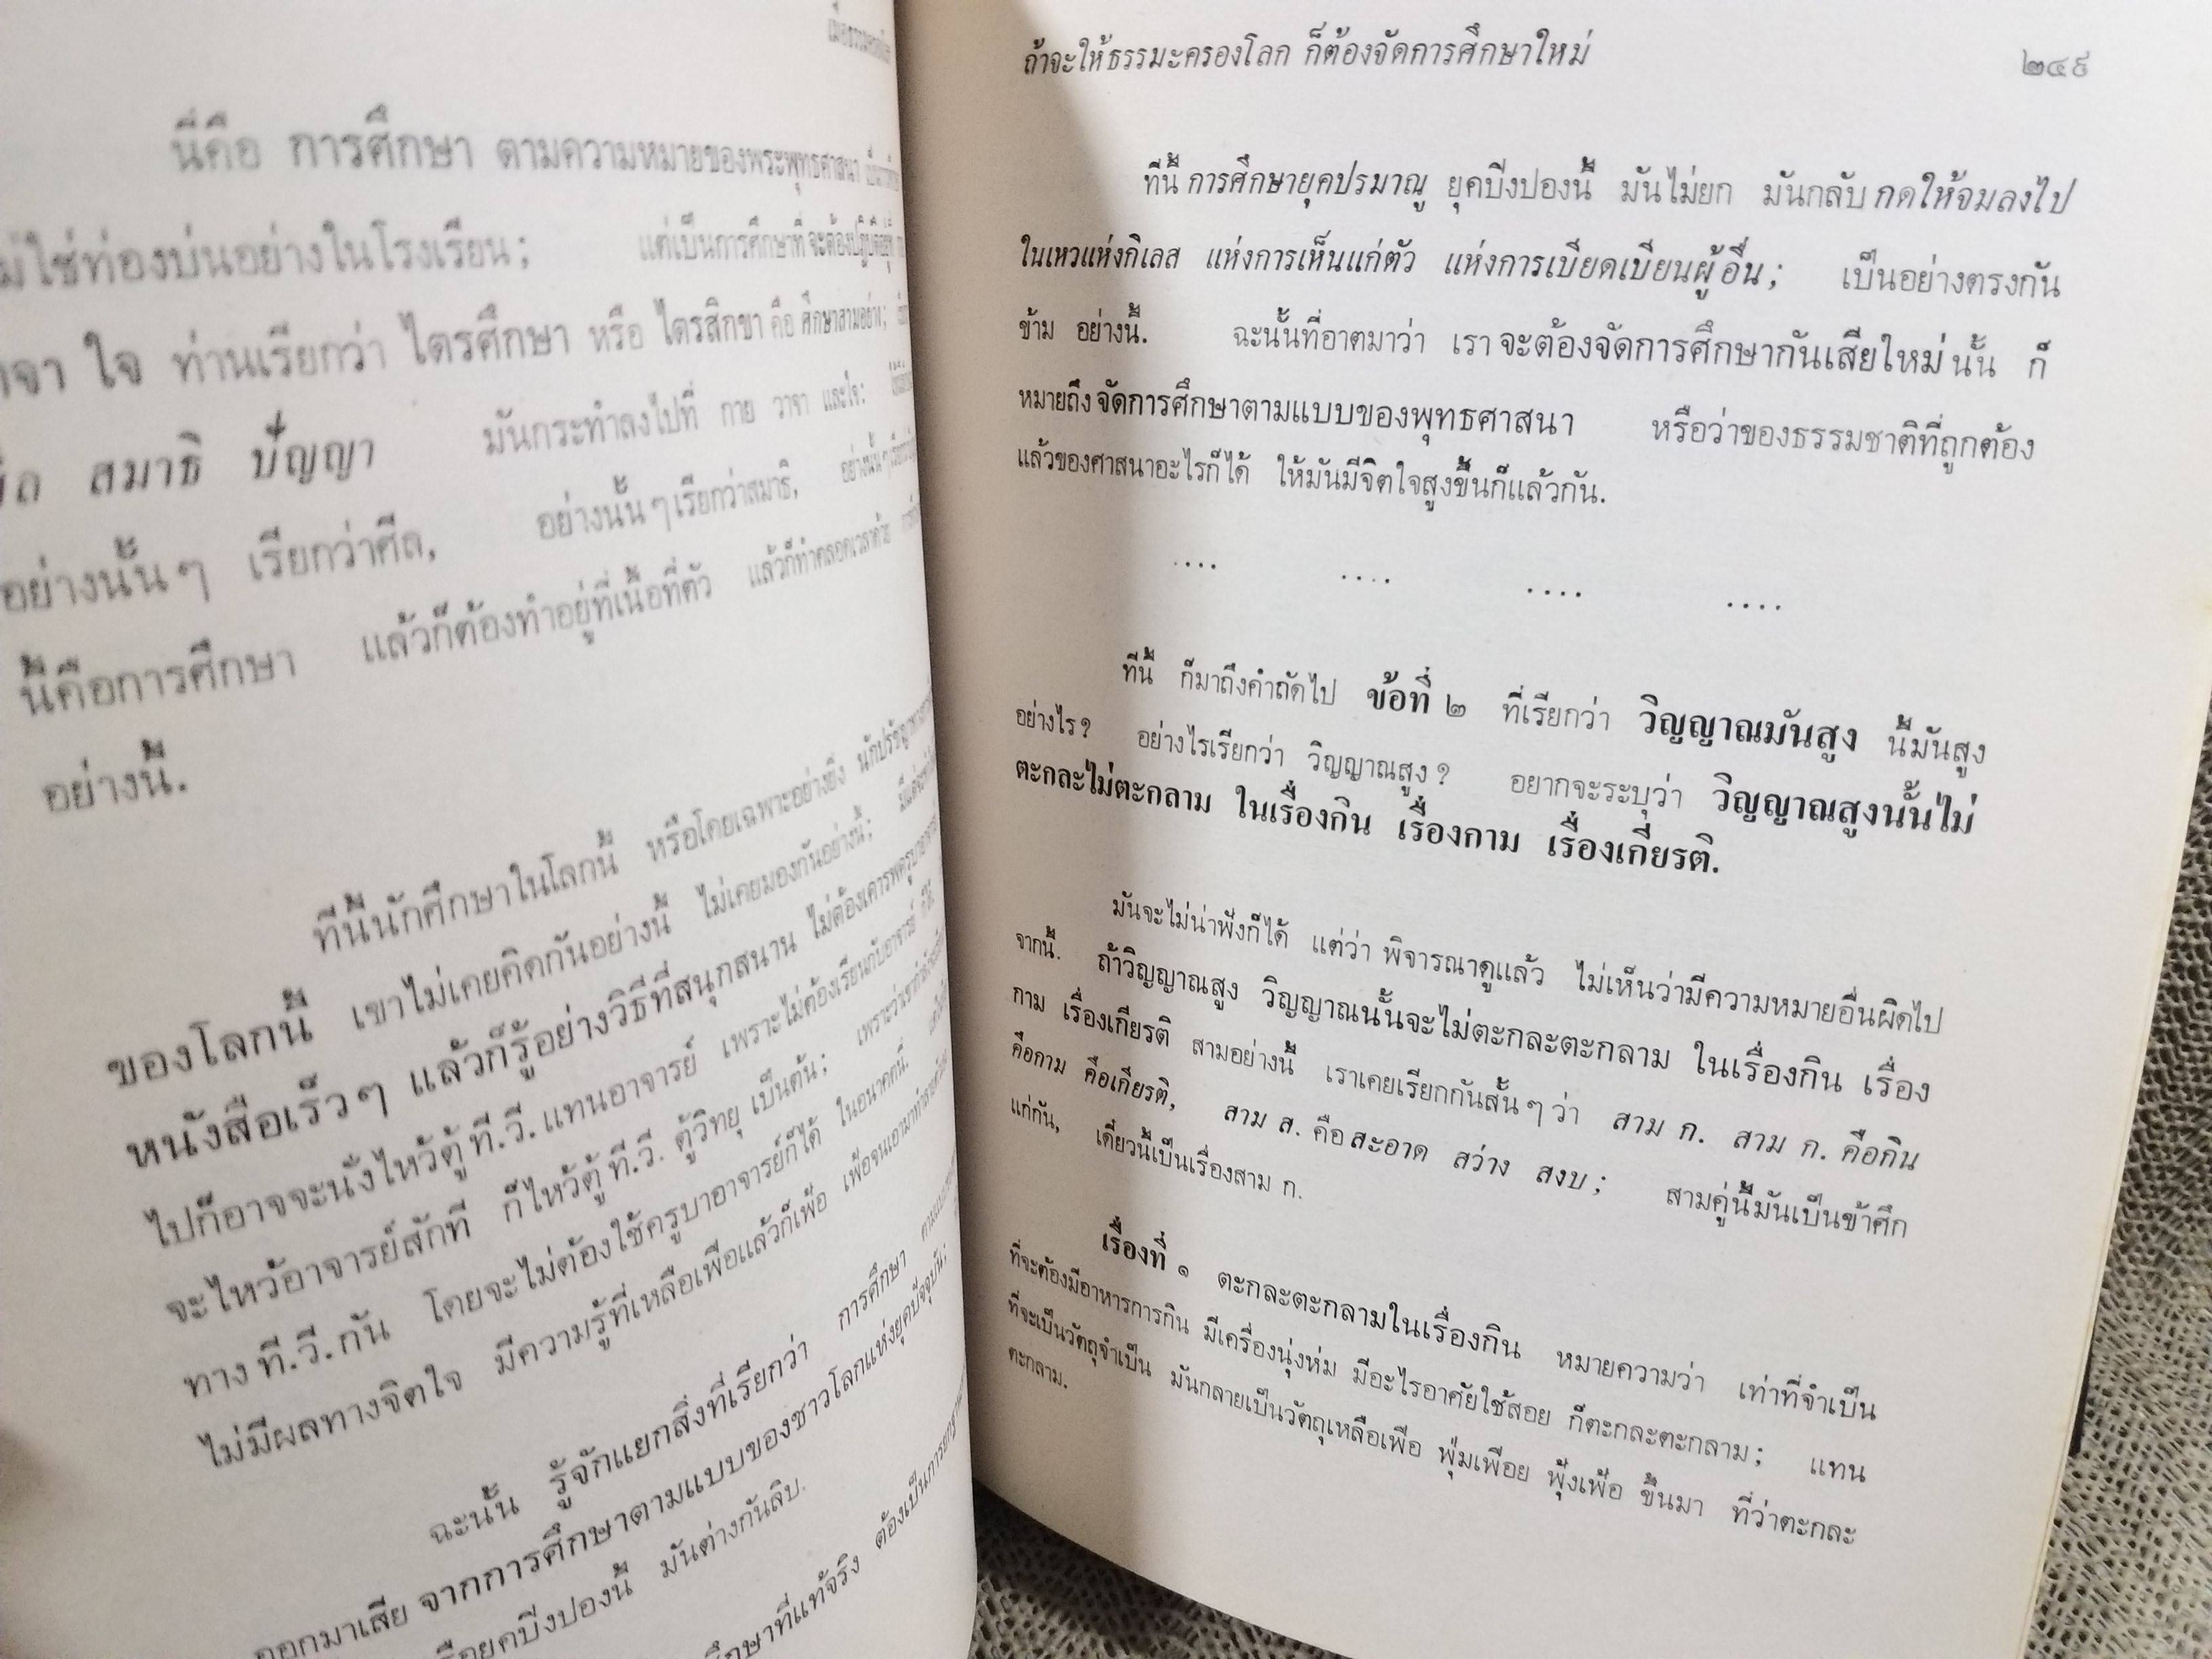 นี่คือ การศึกษา ตามความหมายของพระพุทธศาสนา
ไม่ใช่ท่องบ่นอย่างในโรงเรียน; แต่เป็นการศึกษาที่จะต้องปฏิบัติอยู่
วาจา ใจ ท่านเรียกว่า ไตรศึกษา หรือ ไตรสิกขา คือ ศึกษาสามอย่าง;
ศีล สมาธิ ปัญญา มันกระทำลงไปที่ กาย วาจา และใจ:
อย่างนั้นๆ เรียกว่าศีล, อย่างนั้นๆ เรียกว่าสมาธิ, อย่างนั้นๆ
นี้คือการศึกษา แล้วก็ต้องทำอยู่ที่เนื้อที่ตัว แล้วก็ทำตลอดเวลาด้วย
อย่างนี้.
ทีนี้นักศึกษาในโลกนี้ หรือโดยเฉพาะอย่างยิ่ง
ของโลกนี้ เขาไม่เคยคิดกันอย่างนี้ ไม่เคยมองกันอย่างนี้;
หนังสือเร็วๆ แล้วก็รู้อย่างวิธีที่สนุกสนาน ไม่ต้องเคารพครูบาอาจารย์
ไปก็อาจจะนั่งไหว้ตู้ ที.วี. แทนอาจารย์ เพราะไม่ต้องเรียนกับอาจารย์
จะไหว้อาจารย์สักที ก็ไหว้ตู้ ที.วี. ตู้วิทยุ เป็นต้น;
ทาง ที.วี. กัน โดยจะไม่ต้องใช้ครูบาอาจารย์ก็ได้ ในอนาคตนี้.
ไม่มีผลทางจิตใจ มีความรู้ที่เหลือเฟือแล้วก็เฟ้อ
ฉะนั้น รู้จักแยกสิ่งที่เรียกว่า การศึกษา
ออกมาเสีย จากการศึกษาตามแบบของชาวโลกแห่งยุคปัจจุบัน;
บึ้งปองนี้ มันต่างกันลิบ.
ศึกษาที่แท้จริง ต้องเป็นการ
ถ้าจะให้ธรรมะครองโลก ก็ต้องจัดการศึกษาใหม่ ๒๔๙
ทีนี้ การศึกษายุคปรมาณู ยุคบึ้งปองนี้ มันไม่ยก มันกลับ กดให้จมลงไป
ในเหวแห่งกิเลส แห่งการเห็นแก่ตัว แห่งการเบียดเบียนผู้อื่น; เป็นอย่างตรงกัน
ข้าม อย่างนี้. ฉะนั้นที่อาตมาว่า เราจะต้องจัดการศึกษากันเสียใหม่ นั้น ก็
หมายถึง จัดการศึกษาตามแบบของพุทธศาสนา หรือว่าของธรรมชาติที่ถูกต้อง
แล้วของศาสนาอะไรก็ได้ ให้มันมีจิตใจสูงขึ้นก็แล้วกัน.
.... .... .... ....
ทีนี้ ก็มาถึงคำถัดไป ข้อที่ ๒ ที่เรียกว่า วิญญาณมันสูง นี้มันสูง
อย่างไร? อย่างไรเรียกว่า วิญญาณสูง? อยากจะระบุว่า วิญญาณสูงนั้นไม่
ตะกละไม่ตะกลาม ในเรื่องกิน เรื่องกาม เรื่องเกียรติ.
มันจะไม่น่าฟังก็ได้ แต่ว่า พิจารณาดูแล้ว ไม่เห็นว่ามีความหมายอื่นผิดไป
จากนี้. ถ้าวิญญาณสูง วิญญาณนั้นจะไม่ตะกละตะกลาม ในเรื่องกิน เรื่อง
กาม เรื่องเกียรติ สามอย่างนี้ เราเคยเรียกกันสั้นๆ ว่า สาม ก. สาม ก. คือกิน
คือกาม คือเกียรติ, สาม ส. คือ สะอาด สว่าง สงบ; สามคู่นี้มันเป็นข้าศึก
แก่กัน, เดี๋ยวนี้เป็นเรื่องสาม ก.
เรื่องที่ ๑ ตะกละตะกลามในเรื่องกิน หมายความว่า เท่าที่จำเป็น
ที่จะต้องมีอาหารการกิน มีเครื่องนุ่งห่ม มีอะไรอาศัยใช้สอย ก็ตะกละตะกลาม; แทน
ที่จะเป็นวัตถุจำเป็น มันกลายเป็นวัตถุเหลือเฟือ ฟุ่มเฟือย ฟุ้งเฟ้อ ขึ้นมา ที่ว่าตะกละ
ตะกลาม.